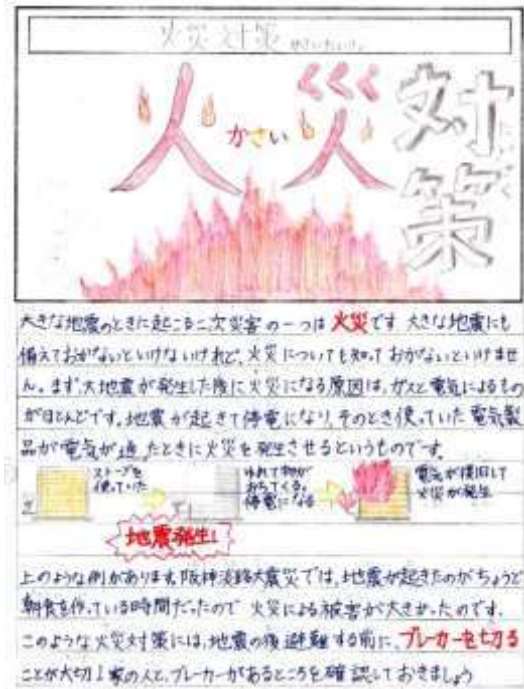 火災対策
かさい
火災
対策
大きな地震のときに起こる二次災害の一つは火災です 大きな地震にも
備えておかないといけないけれど、火災についても知っておかないといけませ
ん。まず、大地震が発生した後に火災になる原因は、ガスと電気によるもの
がほとんどです。地震が起きて停電になり、そのとき使っていた電気製
品が電気が通ったときに火災を発生させるというものです。
ストーブを
使っていた
ゆれて物が
おちてくる。
停電になる
電気が復旧して
火災が発生
地震発生!
上のような例があります。阪神淡路大震災では、地震が起きたのがちょうど
朝食を作っている時間だったので 火災による被害が大きかったのです。
このような火災対策には、地震の後避難する前に、ブレーカーを切る
ことが大切!家の人と、ブレーカーがあるところを確認しておきましょう